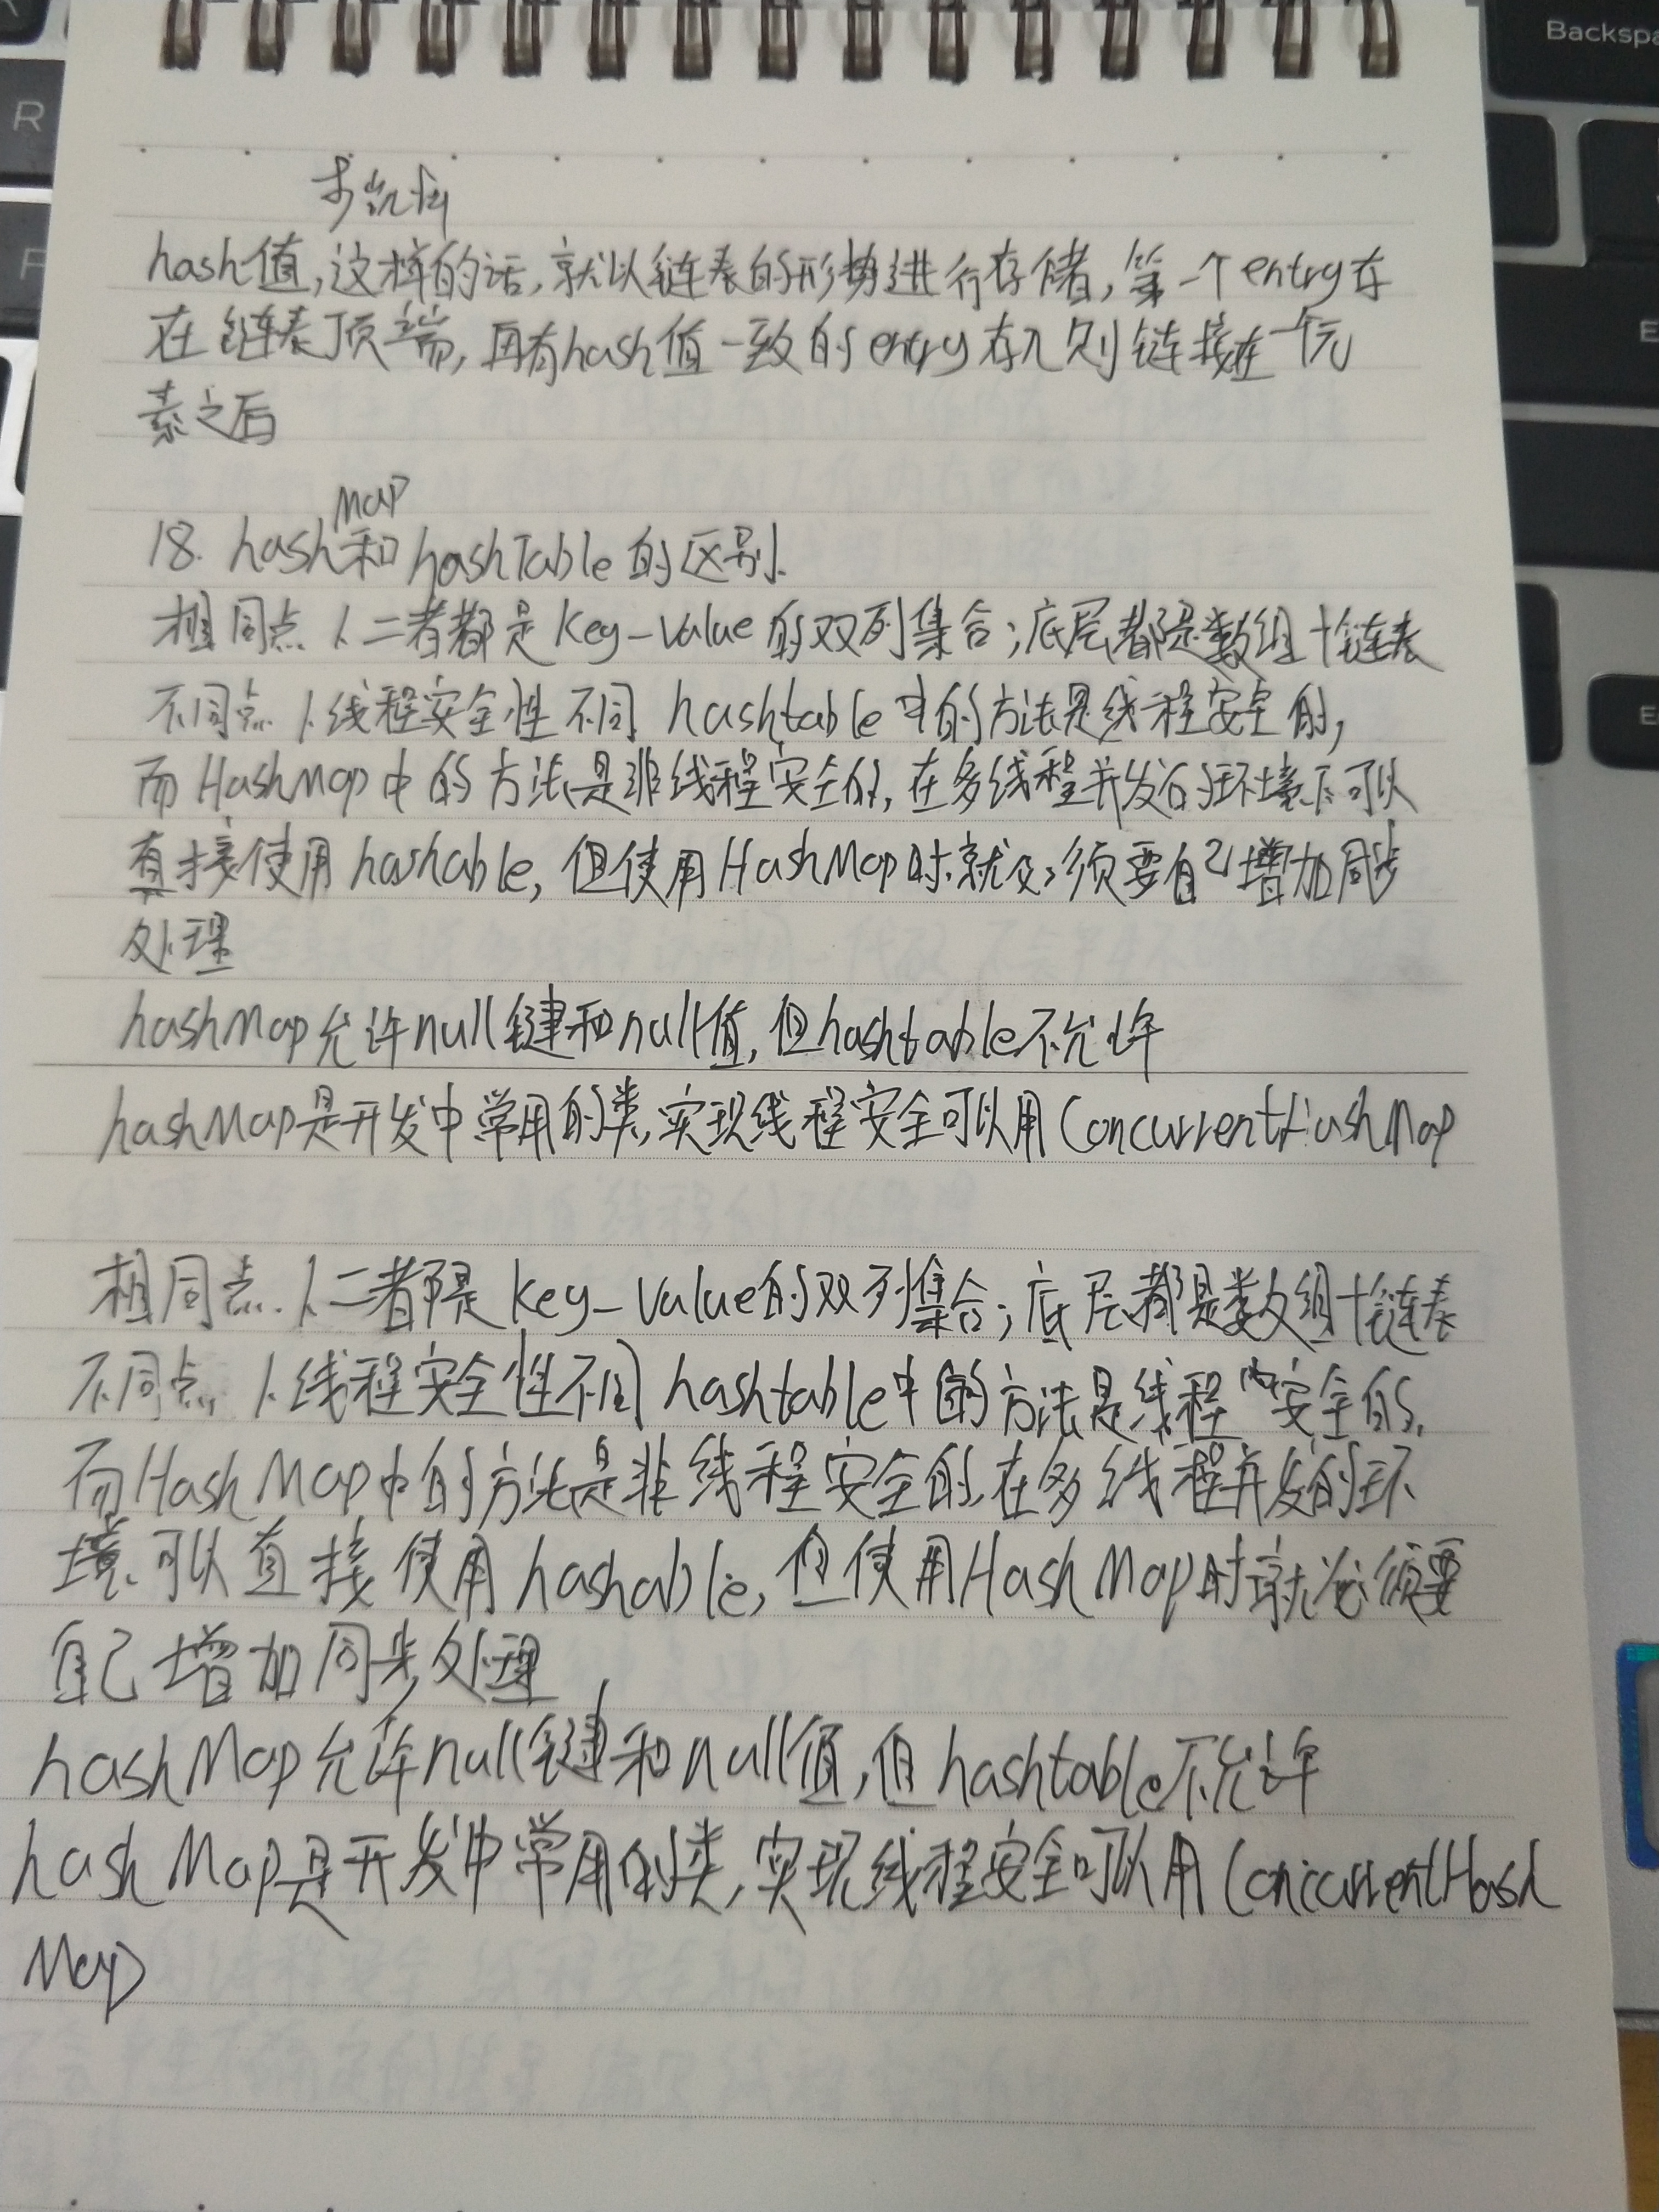 hash值,这样的话,就以链表的形势进行存储,第一个entry存
在链表顶端,再有hash值一致的entry存入则链接在一个元
素之后
Map
18. hash和hashTable的区别.
相同点 1.二者都是key-value的双列集合;底层都是数组+链表
不同点 1.线程安全性不同 hashtable中的方法是线程安全的,
而HashMap中的方法是非线程安全的,在多线程并发的环境下可以
直接使用hashable,但使用HashMap时就必须要自己增加同步
处理
hashMap允许null键和null值,但hashtable不允许
hashMap是开发中常用的类,实现线程安全可以用ConcurrentHashMap
相同点.1.二者都是key-value的双列集合;底层都是数组+链表
不同点 1.线程安全性不同 hashtable中的方法是线程安全的,
而HashMap中的方法是非线程安全的,在多线程并发的环
境,可以直接使用hashable,但使用HashMap时就必须要
自己增加同步处理
hashMap允许null键和null值,但hashtable不允许
hashMap是开发中常用的类,实现线程安全可以用ConcurrentHash
Map
Backspa
R
F
E
E